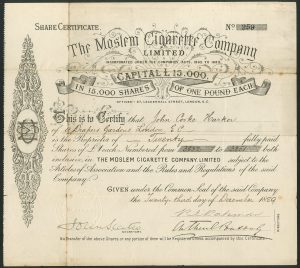 SHARE CERTIFICATE. No 259
The Moslem Cigarette Company
LIMITED
INCORPORATED UNDER THE COMPANIES ACTS, 1862 TO 1883
CAPITAL £15,000.
IN 15,000 SHARES OF ONE POUND EACH.
LEADENHALL STREET, LONDON, E.C.
This is to Certify that John Corke Harker
of Drapers Gardens London E.C.
is the Proprietor of Twenty fully paid
Shares of £1 each Numbered from to both
inclusive in THE MOSLEM CIGARETTE COMPANY LIMITED subject to the
Articles of Association and the Rules and Regulations of the said
Company.
GIVEN under the Common Seal of the said Company
the Twenty third day of December 1889
SECRETARY
DIRECTORS
No Transfer of the above Shares or any portion of them will be Registered unless accompanied by this Certificate.